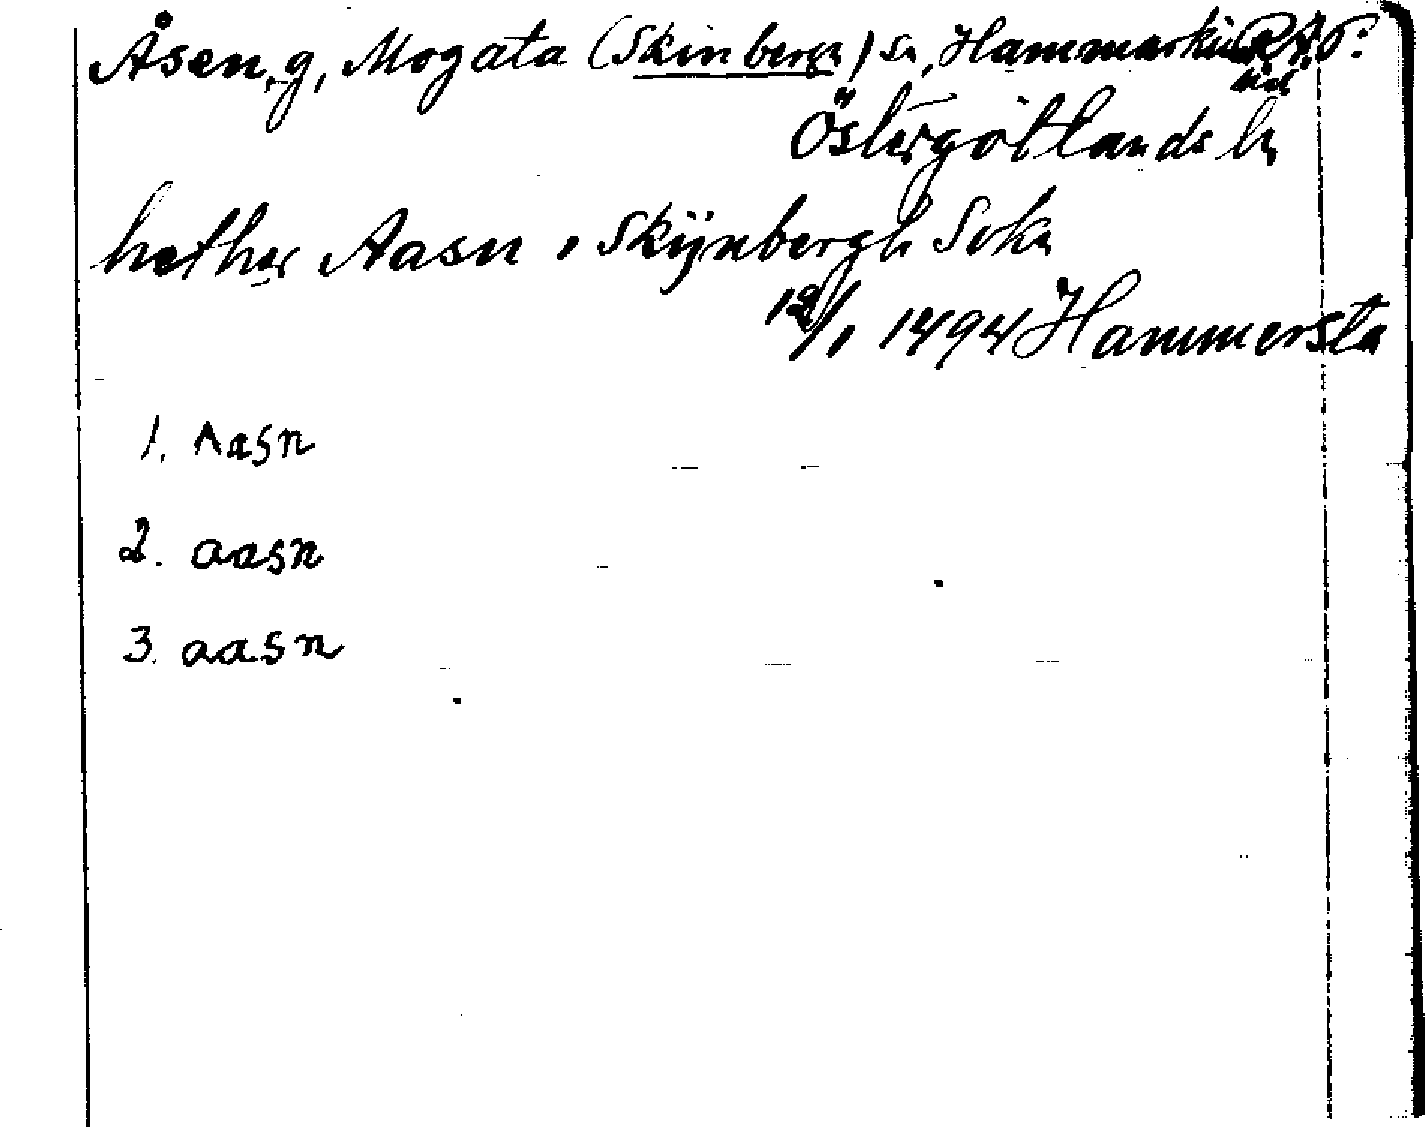 Åsen, g, Mogata (Skinberga) sn, Hammarkind R.A.P.
Östergötlands l.
hether Aasn i Skijnbergh Sokn
12/1 1494 Hammersta
1. Aasn
2. aasn
3. aasn